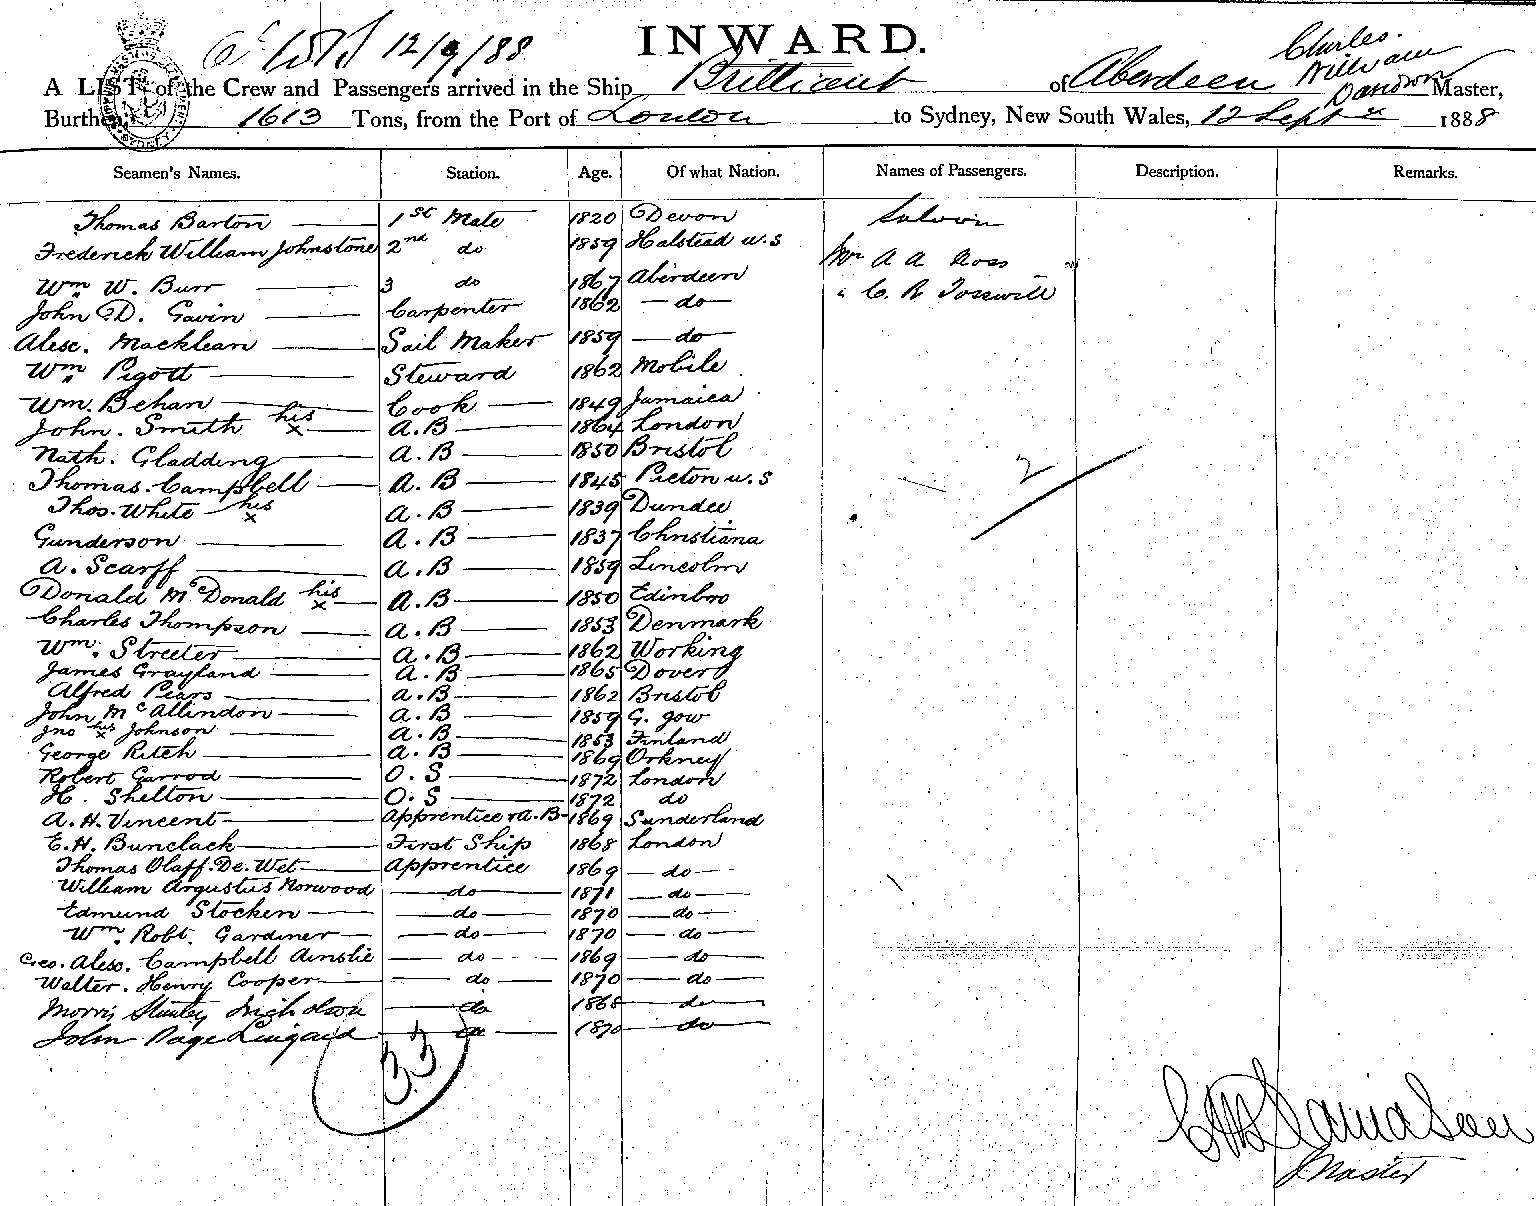 12/9/88
INWARD.
A LIST of the Crew and Passengers arrived in the Ship Brilliant of Aberdeen Charles William Davidson Master,
Burthen, 1613 Tons, from the Port of London to Sydney, New South Wales, 12 Sept 1888
Seamen's Names. Station. Age. Of what Nation. Names of Passengers. Description. Remarks.
Thomas Barton 1st Mate 1820 Devon Saloon
Frederick William Johnstone 2nd do 1859 Halstead u.s Mr A A Ross
Wm W. Burr 3 do 1867 Aberdeen " C. R Tosswill
John D. Gavin Carpenter 1862 do
Alex. Macklean Sail Maker 1859 do
Wm Pigott Steward 1862 Mobile
Wm. Behan Cook 1849 Jamaica
John. Smith his x A.B 1864 London
Nath. Gladding A.B 1850 Bristol
Thomas. Campbell A.B 1845 Picton u.s 2
Thos. White his x A.B 1839 Dundee
Gunderson A.B 1837 Christiana
A. Scarff A.B 1859 Lincolm
Donald McDonald his x A.B 1850 Edinbro
Charles Thompson A.B 1853 Denmark
Wm. Streeter A.B 1862 Working
James Grayland A.B 1865 Dover
Alfred Pears A.B 1862 Bristol
John McAllindon A.B 1859 G. gow
Jno his x Johnson A.B 1853 Finland
George Ritch A.B 1869 Orkney
Robert Garrod O.S 1872 London
H. Shelton O.S 1872 do
A.H. Vincent Apprentice & A.B 1869 Sunderland
E.H. Bunclack First Ship 1868 London
Thomas Olaff. De. Wet Apprentice 1869 do
William Argustus Norwood do 1871 do
Edmund Stocken do 1870 do
Wm. Robt. Gardiner do 1870 do
Geo. Alex. Campbell Ainslie do 1869 do
Walter. Henry Cooper do 1870 do
Morris Stanley Nicholson do 1868 do
John Page Lingard do 1870 do
33
C W Davidson
Master